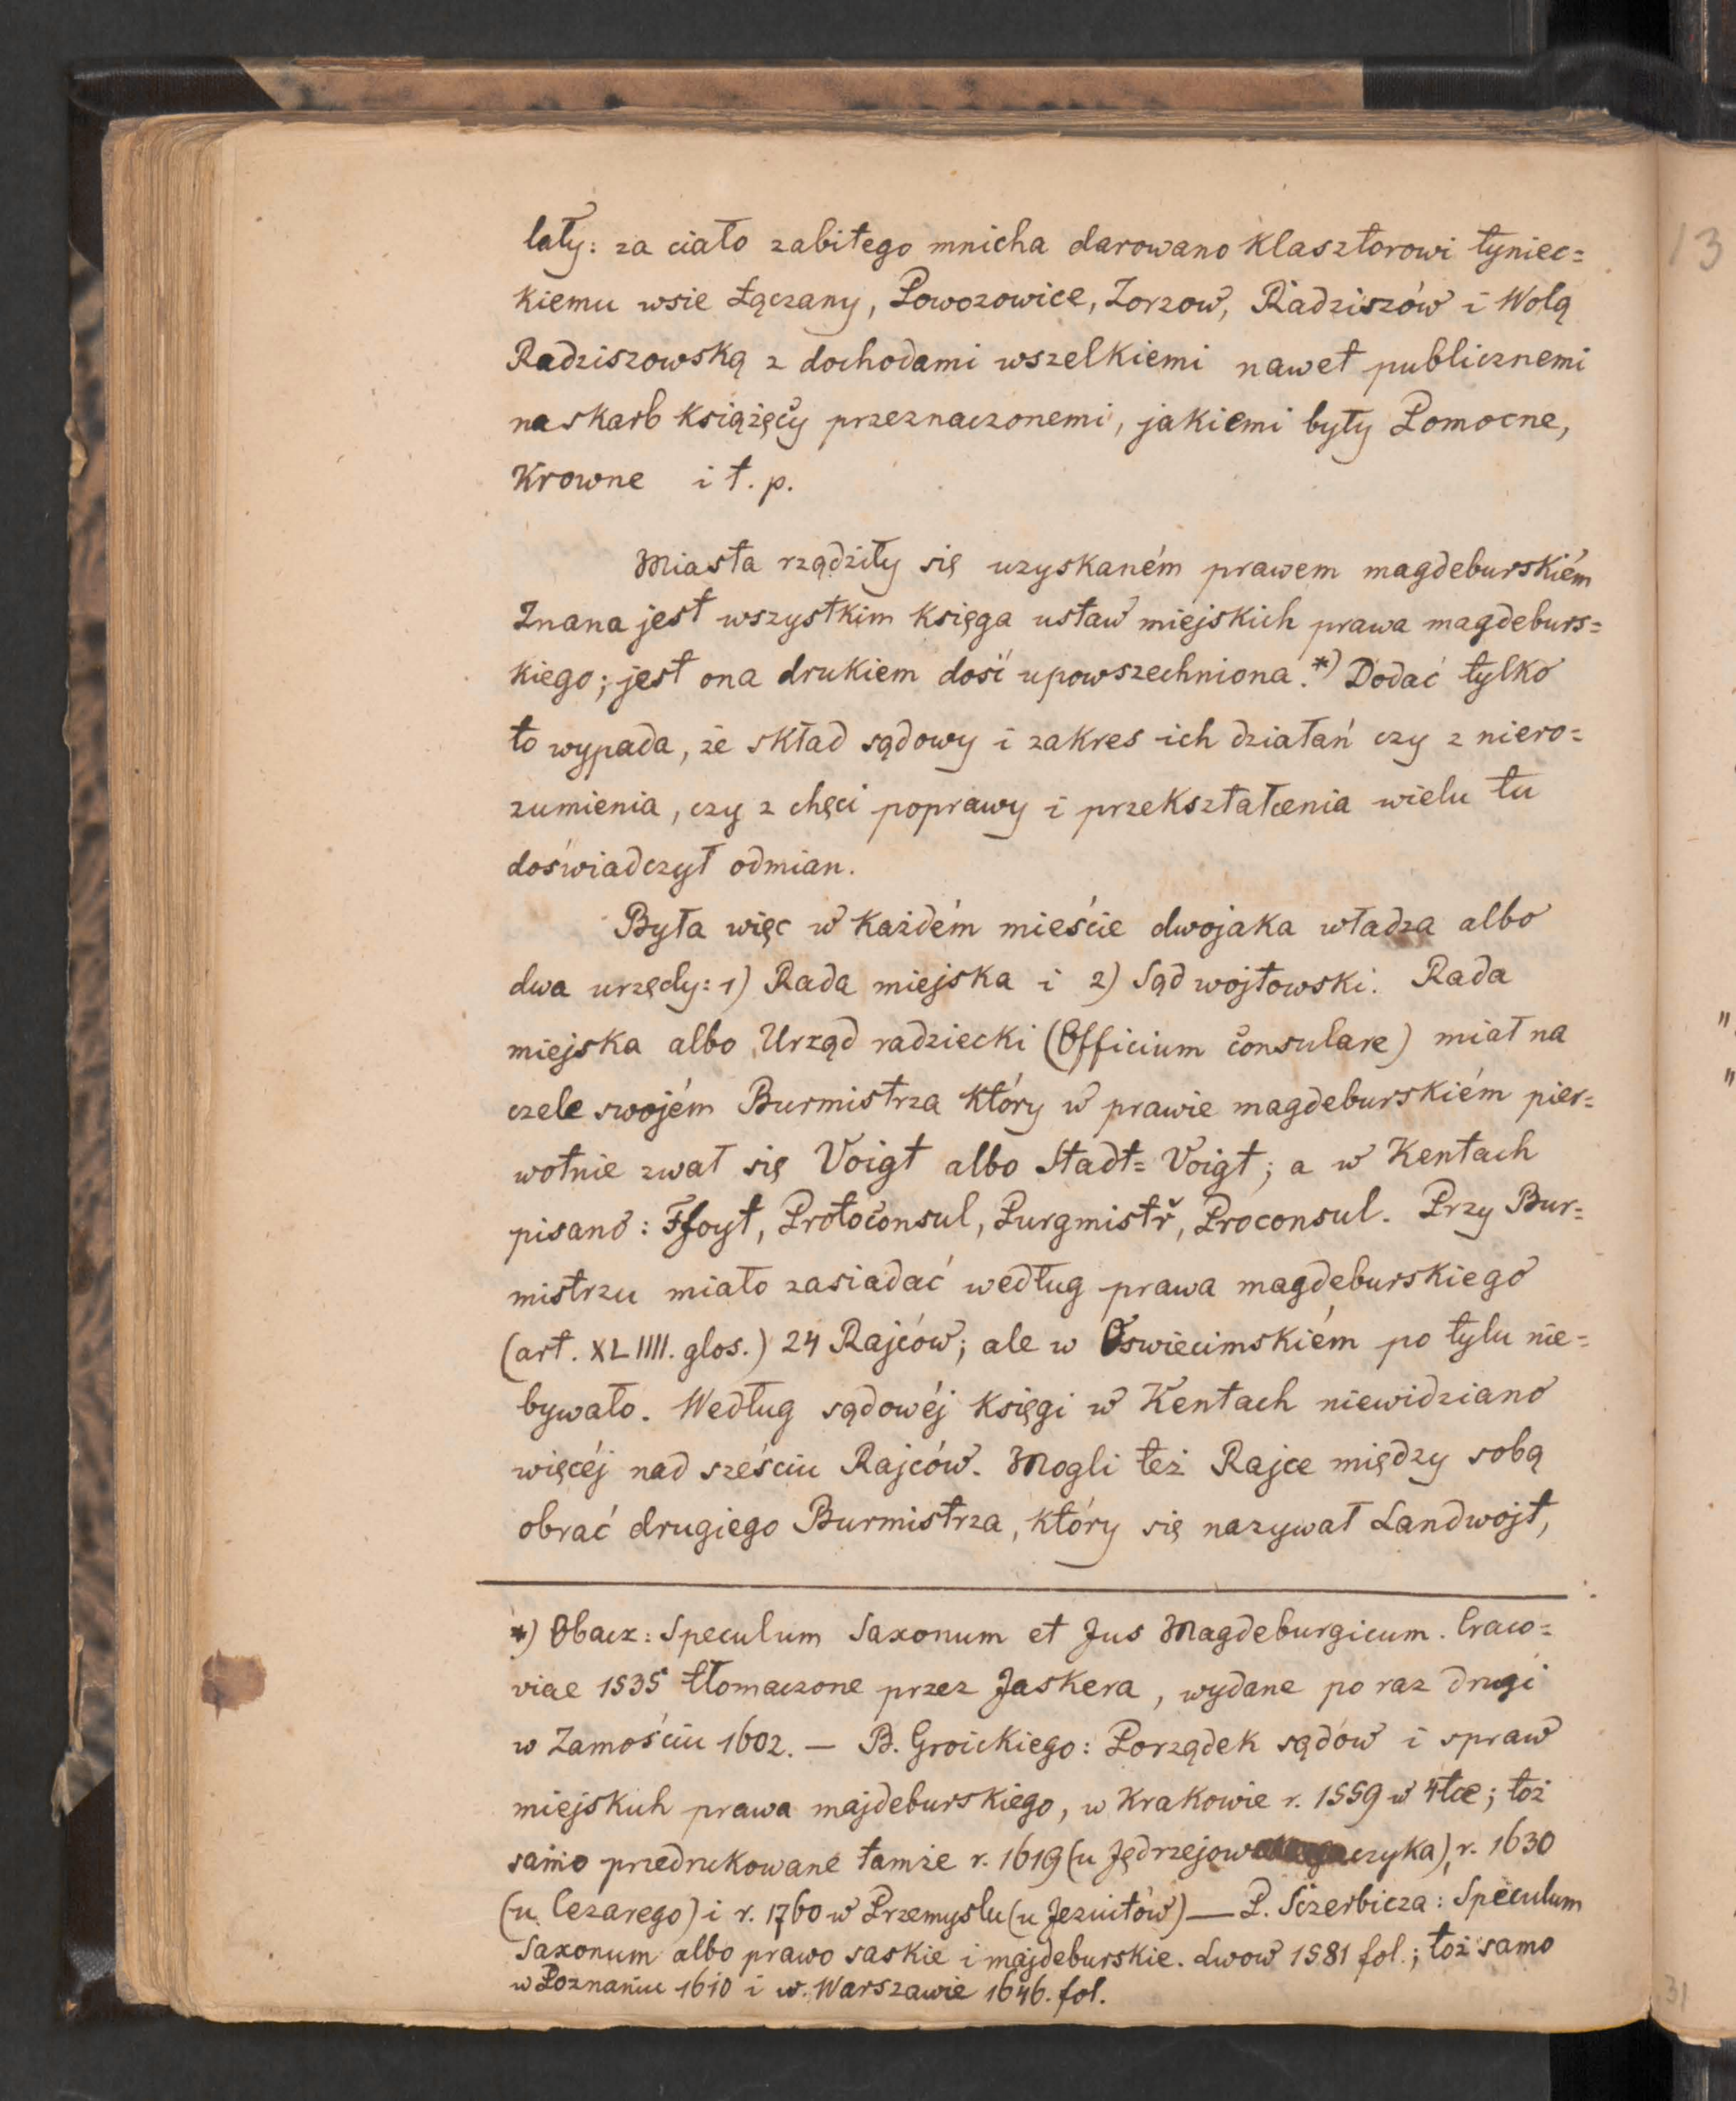 laty: za ciało zabitego mnicha darowano Klasztorowi tyniec=
kiemu wsie Łączany, Powozowice, Zorzow, Radziszów i Wolą
Radziszowską z dochodami wszelkiemi nawet publicznemi
na skarb Książęcy przeznaczonemi, jakiemi były Pomocne,
Krowne i t. p.
Miasta rządziły się uzyskaném prawem magdeburskiém
Znana jest wszystkim Księga ustaw miejskich prawa magdeburs=
kiego; jest ona drukiem dość upowszechniona.*) Dodać tylko
to wypada, że skład sądowy i zakres ich działań czy z niero=
zumienia, czy z chęci poprawy i przekształcenia wielu tu
doświadczył odmian.
Była więc w każdém mieście dwojaka władza albo
dwa urzędy: 1) Rada miejska i 2) Sąd wojtowski. Rada
miejska albo Urząd radziecki (Officium Consulare) miał na
czele swojém Burmistrza który w prawie magdeburskiém pier=
wotnie zwał się Voigt albo Stadt=Voigt; a w Kentach
pisano: Ffoyt, Protoconsul, Purgmistř, Proconsul. Przy Bur=
mistrzu miało zasiadać według prawa magdeburskiego
(art. XLIIII. glos.) 24 Rajców; ale w Oswiecimskiém po tylu nie=
bywało. Według sądowéj Księgi w Kentach niewidziano
więcéj nad sześciu Rajców. Mogli też Rajce między sobą
obrać drugiego Burmistrza, który się nazywał Landwojt,
*) Obacz: Speculum Saxonum et Jus Magdeburgicum. Craco=
viae 1535 tłomaczone przez Jaskera, wydane po raz drugi
w Zamościu 1602. — B. Groickiego: Porządek sądów i spraw
miejskich prawa majdeburskiego, w Krakowie r. 1559 w 4tce; toż
samo przedrukowane tamże r. 1619 (u Jędrzejowczyka), r. 1630
(u Cezarego) i r. 1760 w Przemyslu (u Jezuitów) — P. Sczerbicza: Speculum
Saxonum albo prawo saskie i majdeburskie. Lwow 1581 fol.; toż samo
w Poznaniu 1610 i w. Warszawie 1646. fol.
13
31